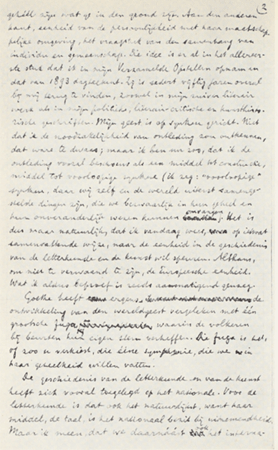 3
gehéél zijn wat zij in den grond zijn. Aan den anderen
kant, eenheid van de persoonlijkheid met haar maatschap-
pelijke omgeving, het vraagstuk van den samenhang van
individu en gemeenschap. Die idee is er al in het allereer-
ste stuk dat ik in mijn Verzamelde Opstellen opnam en
dat van 1893 dagteekent. Zij is sedert vijftig jaren overal
bij mij terug te vinden, zoowel in mijn zuiver literair
werk als in mijn politieke, literair-critische en kunsthisto-
rische geschriften. Mijn geest is op synthese gericht. Niet
dat ik de noodzakelijkheid van ontleding zou ontkennen,
dat ware te dwaas; maar ik ben mij zoo, dat ik de
ontleding vooral beschouw als een middel tot constructie,
middel tot voorloopige synthese (ik zeg: "voorloopige"
synthese, daar wij zelf en de wereld uiterst samenge-
stelde dingen zijn, die we bezwaarlijk in hun geheel en
hun onveranderlijk wezen kunnen omvangen). Het is
dus maar natuurlijk, dat ik vandaag wees, op ietwat
samenvattende wijze, naar de eenheid in de geschiedenis
van de letterkunde en de kunst wil speuren. Althans,
om niet te verwaand te zijn, de Europeesche eenheid.
Wat ik alzoo beproef is reeds aanmatigend genoeg.
Goethe heeft ergens, de
ontwikkeling van den wereldgeest vergeleken met één
grootsche fuga, waarin de volkeren
bij beurten hun eigen stem verheffen. Die fuga is het,
of zoo u verkiest, die ééne symphonie, die we in
haar geheelheid willen vatten.
De geschiedenis van de letterkunde en van de kunst
heeft zich vooral toegelegd op het nationale. Voor de
letterkunde is dat ook het natuurlijkst, want haar
middel, de taal, is het nationaal bezit bij uitnemendheid.
Maar ik meen, dat we daarnaast ook het interna-